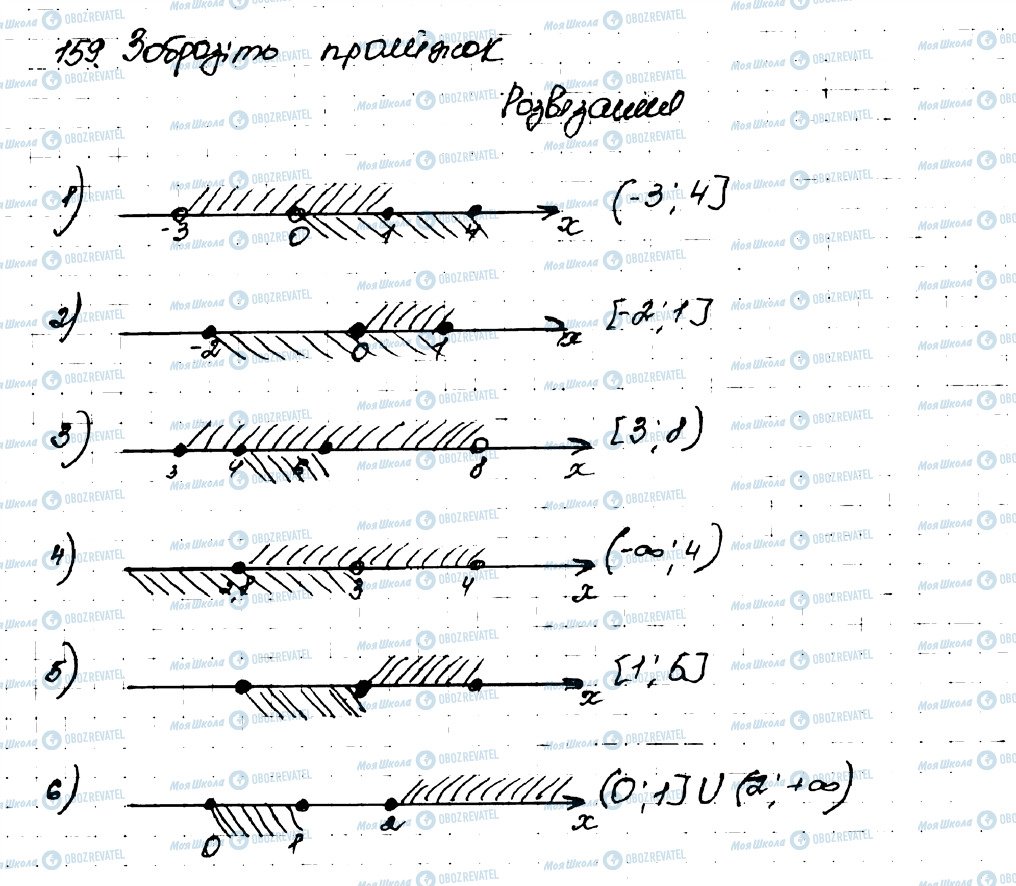 159. Зобразіть проміжок
Розвязання
1) -3 0 1 4 x (-3; 4]
2) -2 0 1 x [-2; 1]
3) 3 4 6 8 x [3; 8)
4) 2,8 3 4 x (-∞; 4)
5) x [1; 6]
6) 0 1 2 x (0; 1] U (2; +∞)